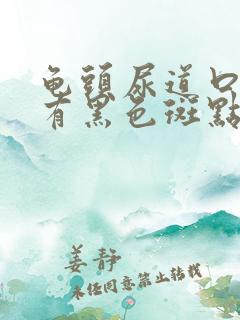 龟頭尿道口
有黑色斑點
姜静
未经同意禁止转载